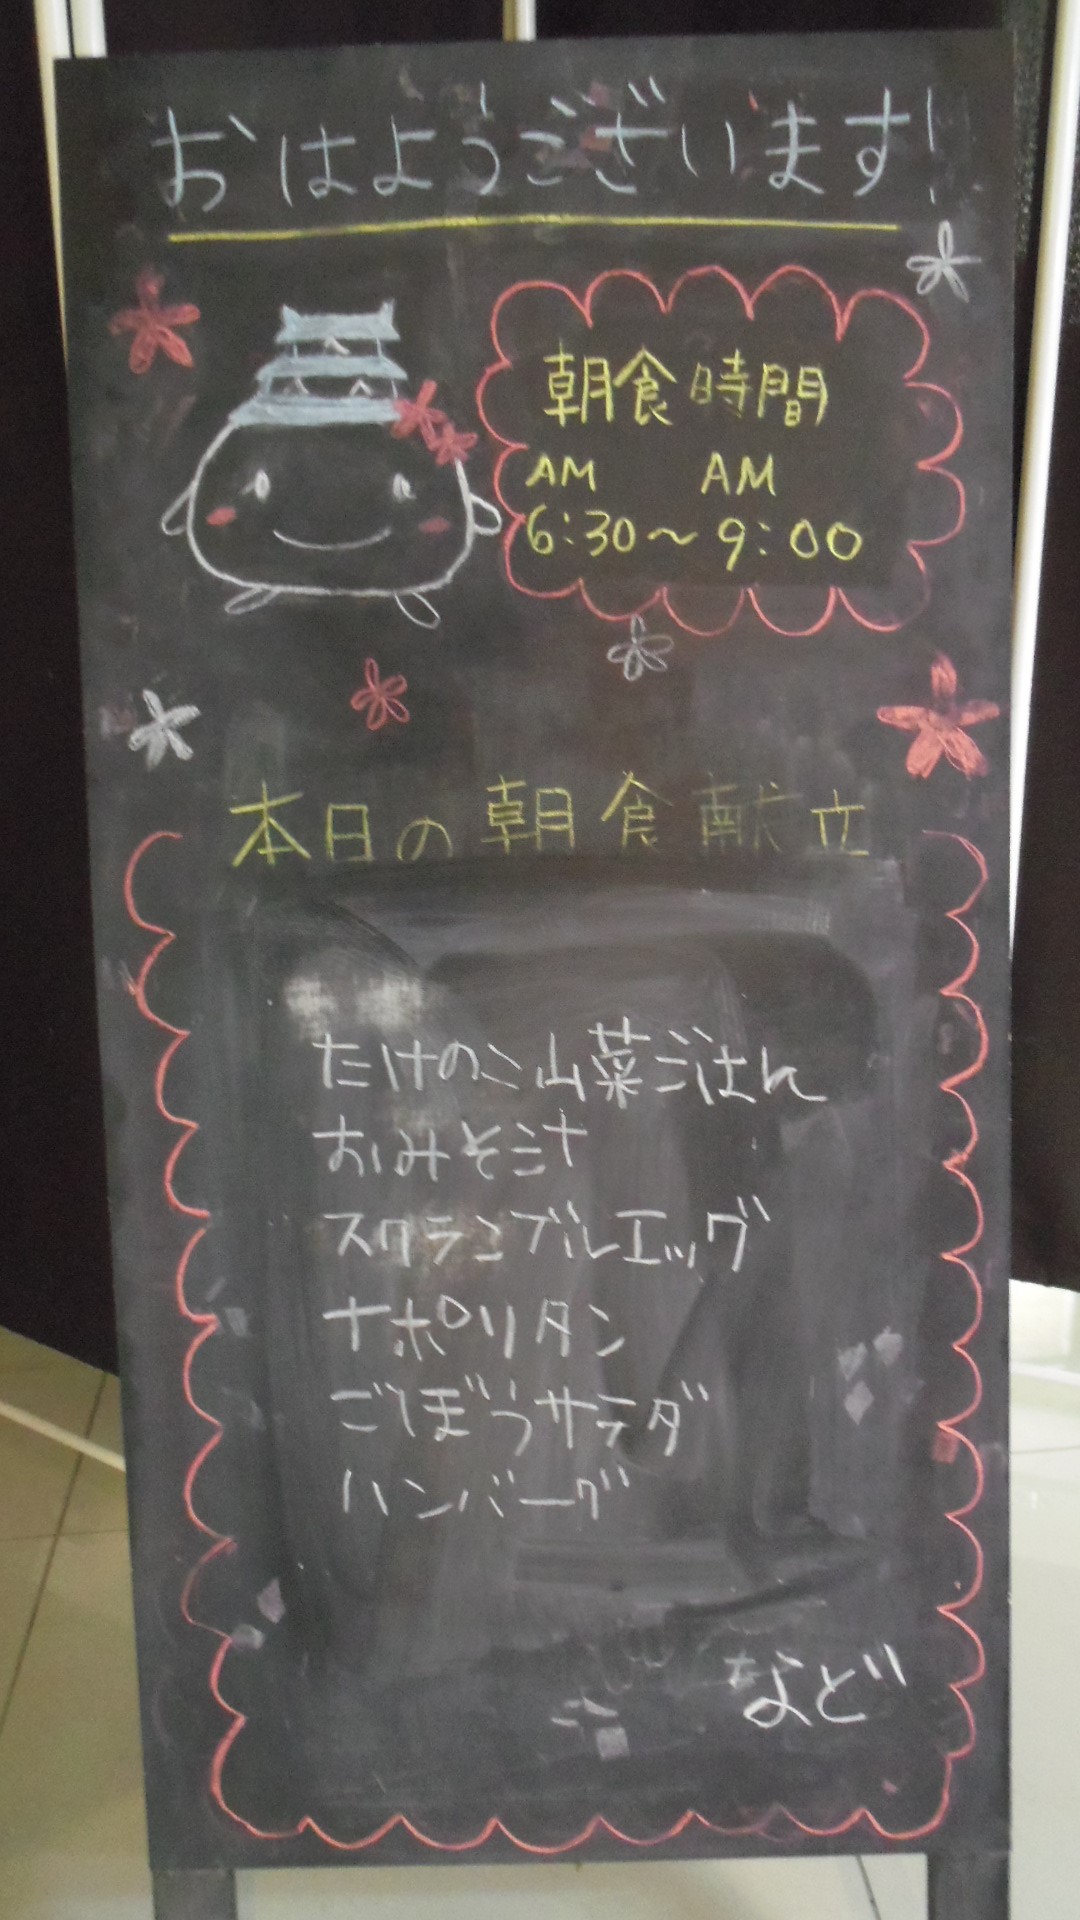 おはようございます!
朝食時間
AM AM
6:30～9:00
本日の朝食献立
たけのこ山菜ごはん
おみそ汁
スクランブルエッグ
ナポリタン
ごぼうサラダ
ハンバーグ
など